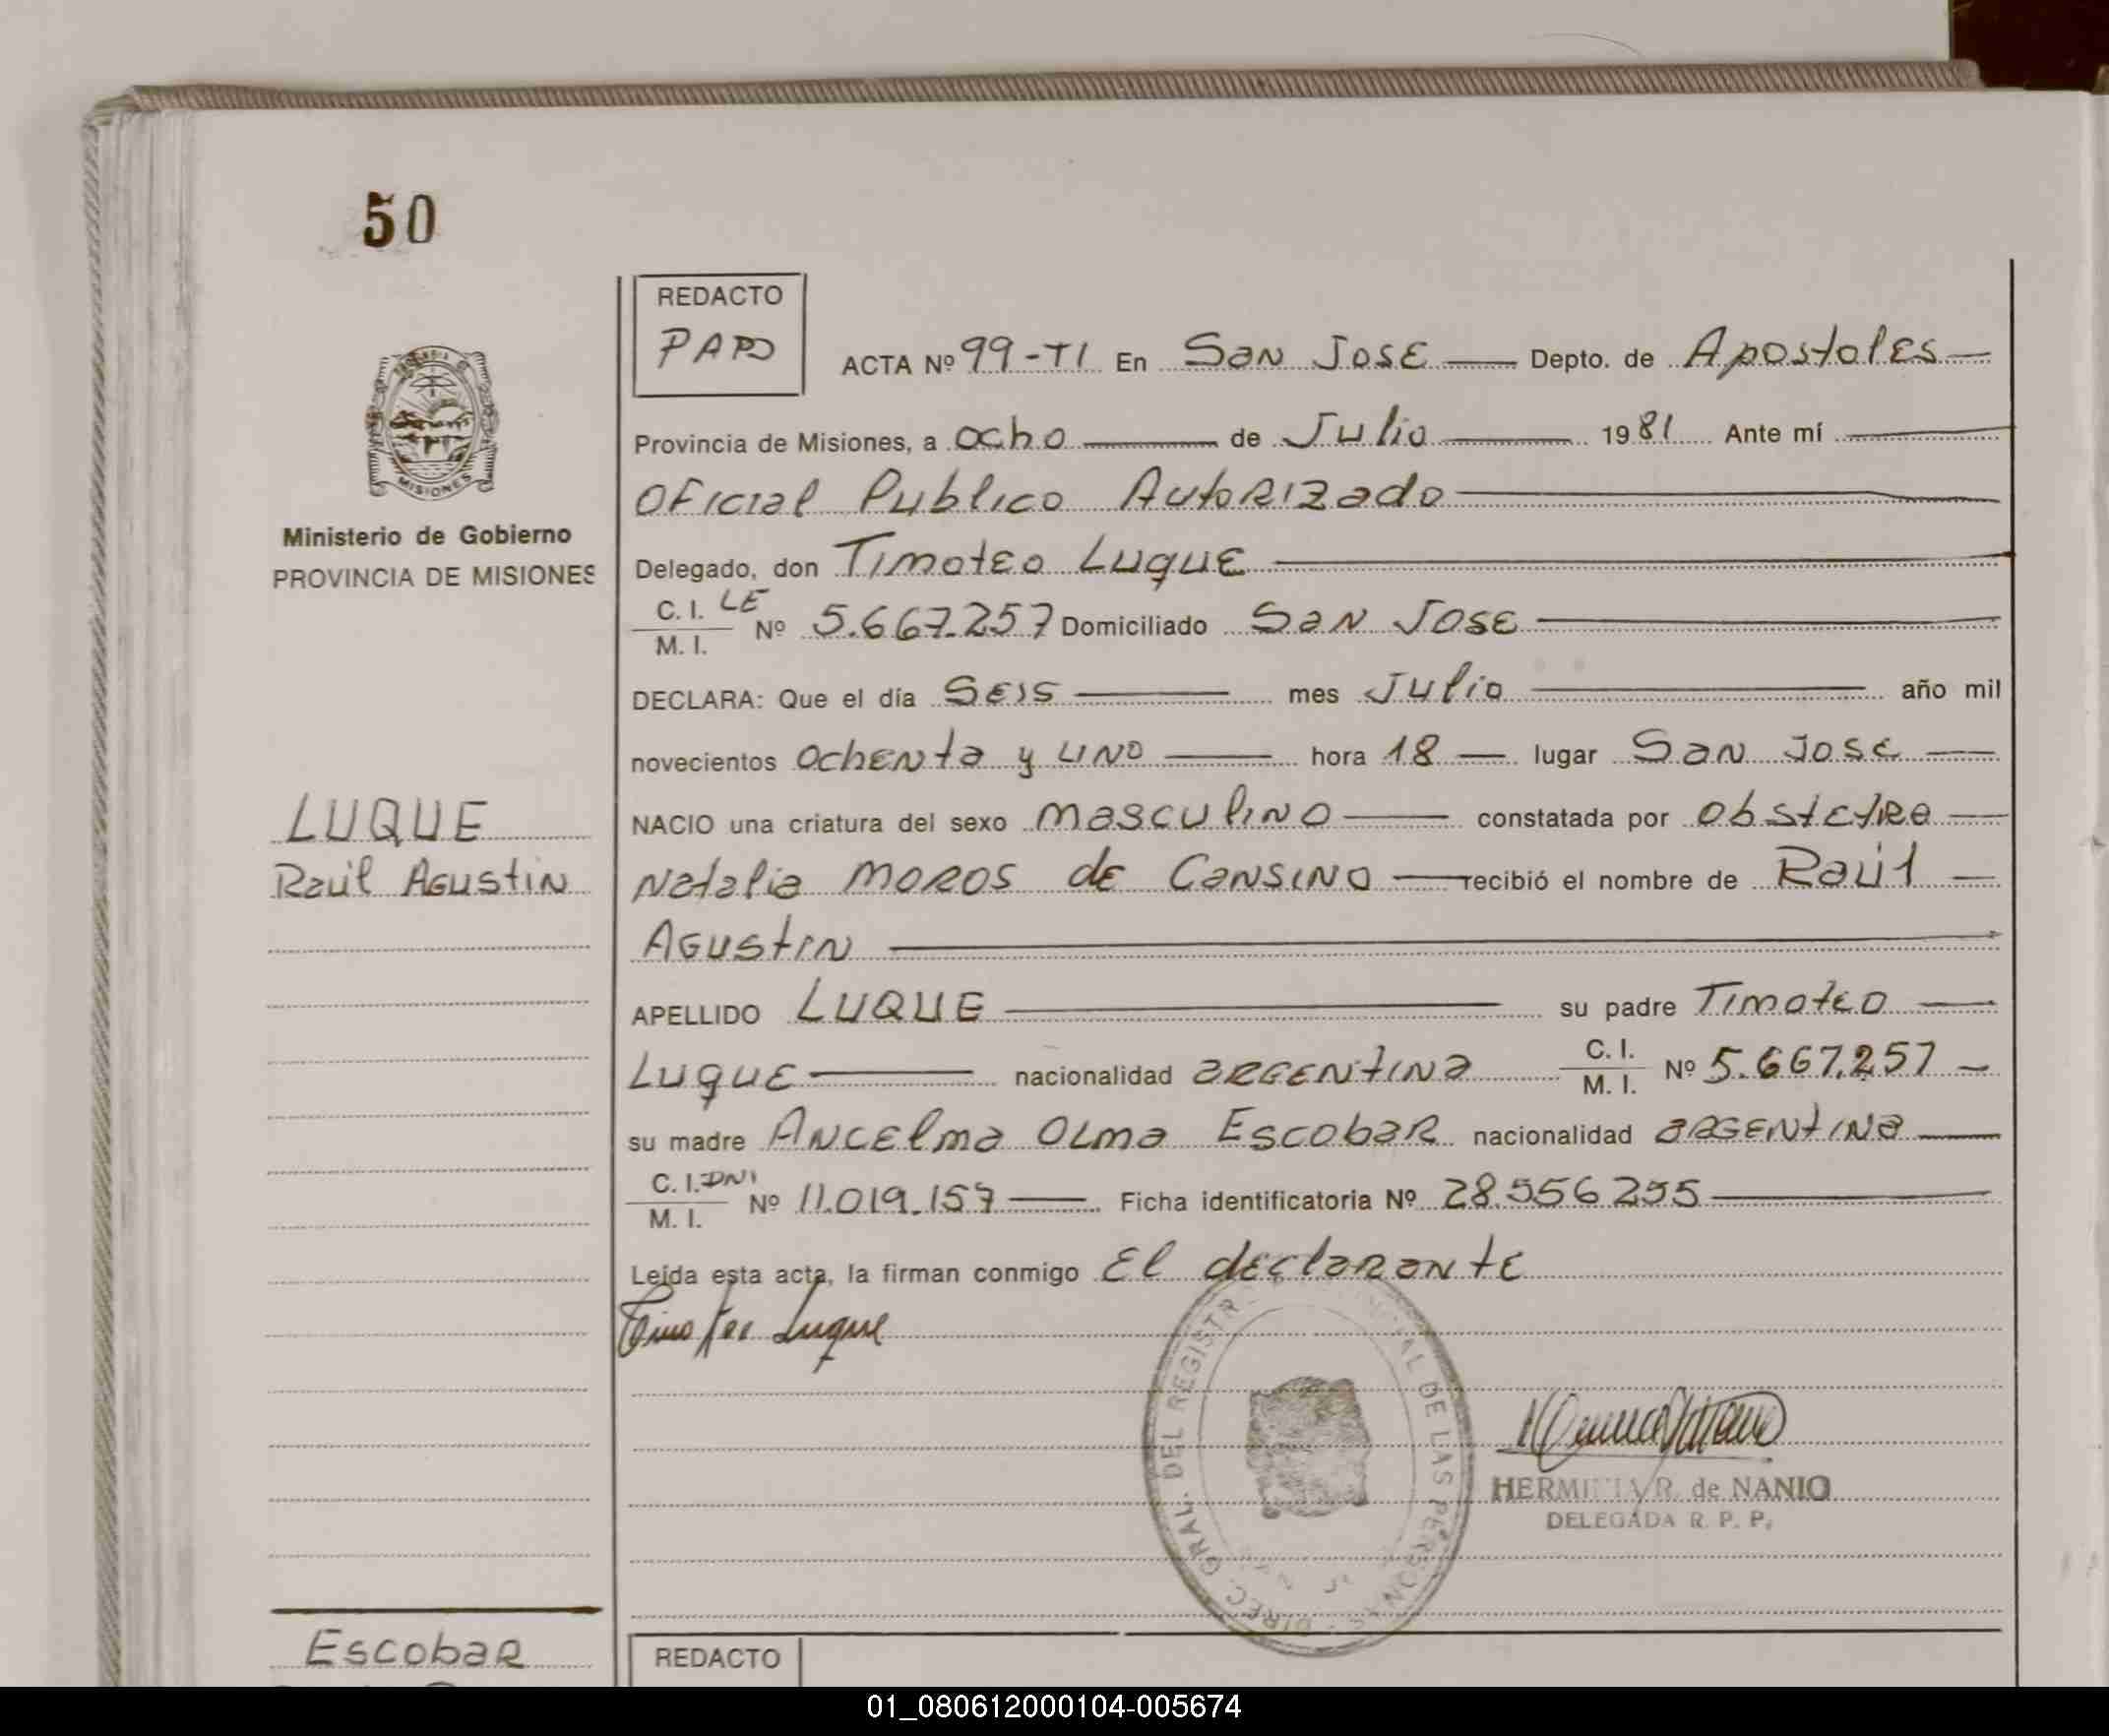 50
REDACTO
PAPD
ACTA Nº 99-TI En San Jose Depto. de Apostoles
MISIONES
Ministerio de Gobierno
PROVINCIA DE MISIONES
Provincia de Misiones, a ocho de Julio 1981 Ante mí
Oficial Publico Autorizado
Delegado, don Timoteo Luque
C. I. LE
M. I. Nº 5.667.257 Domiciliado San Jose
DECLARA: Que el día Seis mes Julio año mil
novecientos ochenta y uno hora 18 lugar San Jose
LUQUE
NACIO una criatura del sexo masculino constatada por obstetra
Raúl Agustin
Natalia Moros de Cansino recibió el nombre de Raúl
Agustin
APELLIDO LUQUE su padre Timoteo
Luque nacionalidad argentina C. I. M. I. Nº 5.667.257
su madre Ancelma Olma Escobar nacionalidad argentina
C. I. DNI
M. I. Nº 11.019.157 Ficha identificatoria Nº 28.556.255
Leída esta acta, la firman conmigo El declarante
Timoteo Luque
DIREC. GRAL. DEL REGISTR DE LAS PERSONAS
R. de NANIO
DELEGADA R. P. P.
Escobar
REDACTO
01_080612000104-005674